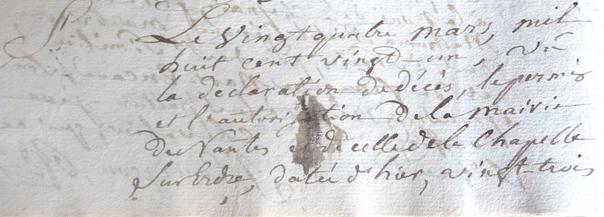 Le vingt quatre mars, mil
huit cent vingt-un, vu
la déclaration de décès, le permis
et l'autorisation de la mairie
de Nantes et de celle de la Chapelle
sur Erdre, datée d'hier, vingt-trois